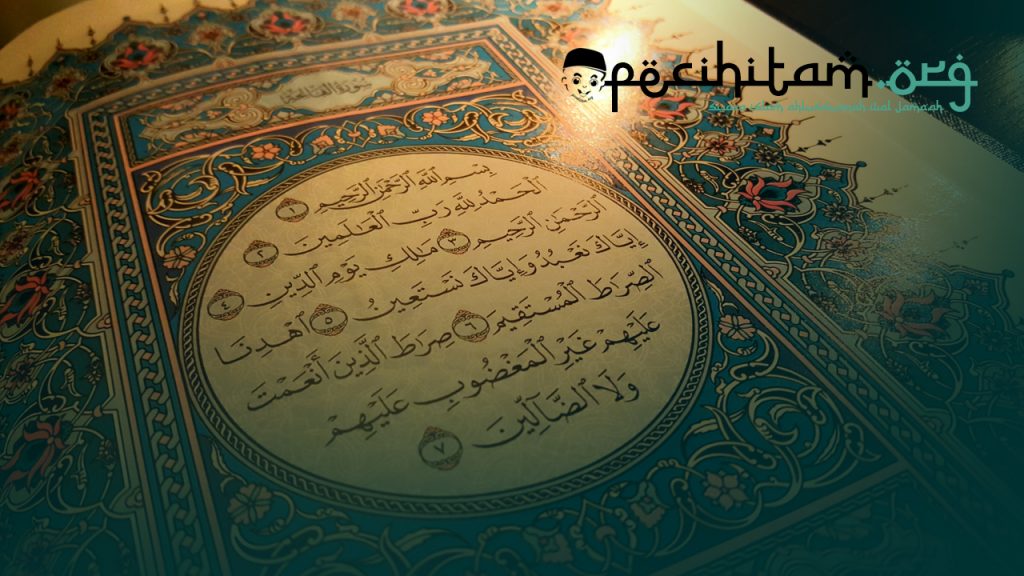 pëcihitam.örg
Suara Islam Ahlussunnah wal Jamaah
سُورَةُ الفَاتِحَةِ
بِسْمِ ٱللَّهِ ٱلرَّحْمَٰنِ ٱلرَّحِيمِ ١
ٱلْحَمْدُ لِلَّهِ رَبِّ ٱلْعَٰلَمِينَ ٢
ٱلرَّحْمَٰنِ ٱلرَّحِيمِ ٣ مَٰلِكِ يَوْمِ ٱلدِّينِ ٤
إِيَّاكَ نَعْبُدُ وَإِيَّاكَ نَسْتَعِينُ ٥ ٱهْدِنَا
ٱلصِّرَٰطَ ٱلْمُسْتَقِيمَ ٦ صِرَٰطَ ٱلَّذِينَ أَنْعَمْتَ
عَلَيْهِمْ غَيْرِ ٱلْمَغْضُوبِ عَلَيْهِمْ
وَلَا ٱلضَّآلِّينَ ٧